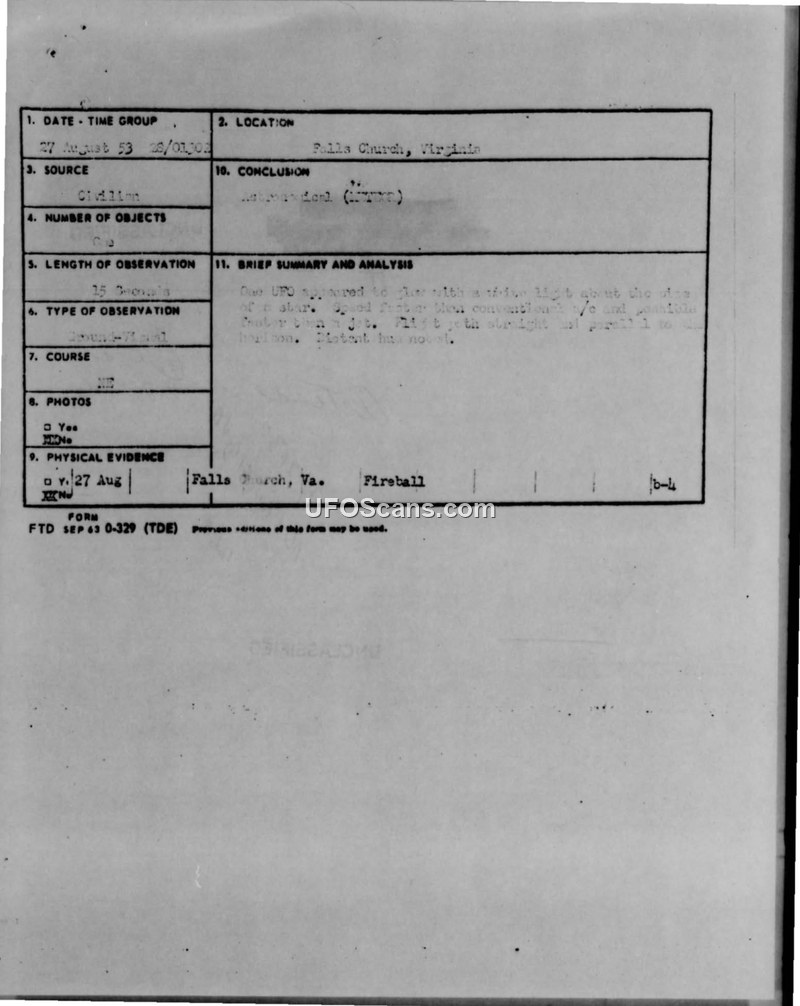 1. DATE - TIME GROUP
27 August 53
2. LOCATION
Falls Church, Virginia
3. SOURCE
Civilian
10. CONCLUSION
Astronomical
4. NUMBER OF OBJECTS
One
5. LENGTH OF OBSERVATION
15 Seconds
11. BRIEF SUMMARY AND ANALYSIS
One UFO appeared to glow with a white light about the size
of a star. Speed faster than conventional a/c and possible
faster than a jet. Flight path straight and parallel to the
horizon. Distant hum noted.
6. TYPE OF OBSERVATION
Ground-Visual
7. COURSE
NE
8. PHOTOS
□ Yes
No
9. PHYSICAL EVIDENCE
□ Y. 27 Aug Falls Church, Va. Fireball b-4
No
UFOScans.com
FORM
FTD SEP 63 0-329 (TDE) Previous editions of this form may be used.
UNCLASSIFIED